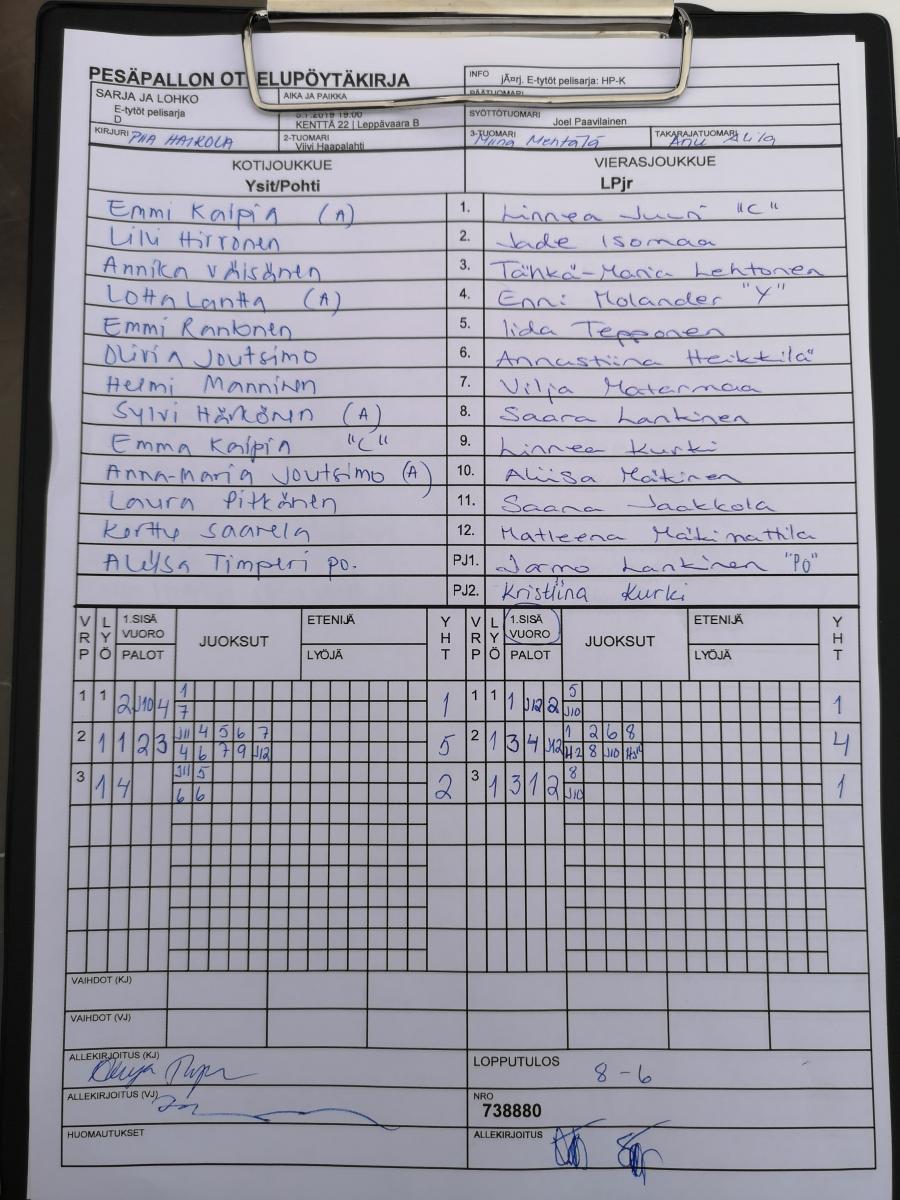 PESÄPALLON OTTELUPÖYTÄKIRJA
INFO jÃ¤rj. E-tytöt pelisarja: HP-K
SARJA JA LOHKO
E-tytöt pelisarja
D
AIKA JA PAIKKA
KENTTÄ 22 | Leppävaara B
PÄÄTUOMARI
SYÖTTÖTUOMARI
Joel Paavilainen
KIRJURI PIIA HAIKOLA
2-TUOMARI
Viivi Haapalahti
3-TUOMARI
Miina Mehtälä
TAKARAJATUOMARI
Anu Alila
KOTIJOUKKUE
Ysit/Pohti
VIERASJOUKKUE
LPjr
Emmi Kalpia (A) 1. Linnea Juuri "C"
Lilvi Hirronen 2. Jade Isomaa
Annika Väisänen 3. Tähkä-Maria Lehtonen
Lotta Lantta (A) 4. Enni Molander "Y"
Emmi Rankonen 5. Iida Tepponen
Olivia Joutsimo 6. Annastiina Heikkilä
Helmi Manninen 7. Vilja Matarmaa
Sylvi Härkönen (A) 8. Saara Lankinen
Emma Kalpia "C" 9. Linnea Kurki
Anna-Maria Joutsimo (A) 10. Aliisa Mäkinen
Laura Pitkänen 11. Saana Jaakkola
Kerttu Saarela 12. Matleena Mäkimattila
Aliisa Timperi po. PJ1. Jarmo Lankinen "PO"
PJ2. Kristiina Kurki
VRP LYÖ 1.SISÄ VUORO PALOT JUOKSUT ETENIJÄ LYÖJÄ YHT VRP LYÖ 1.SISÄ VUORO PALOT JUOKSUT ETENIJÄ LYÖJÄ YHT
1 1 2 J10 4 1 1 1 1 1 J12 2 5 1
7 J10
2 1 1 2 3 J11 4 5 6 7 5 2 1 3 4 J12 1 2 6 8 4
4 6 7 9 J12 H2 8 J10
3 1 4 J11 5 2 3 1 3 1 2 8 1
6 6 J10
VAIHDOT (KJ)
VAIHDOT (VJ)
ALLEKIRJOITUS (KJ)
LOPPUTULOS 8-6
ALLEKIRJOITUS (VJ)
NRO
738880
HUOMAUTUKSET
ALLEKIRJOITUS